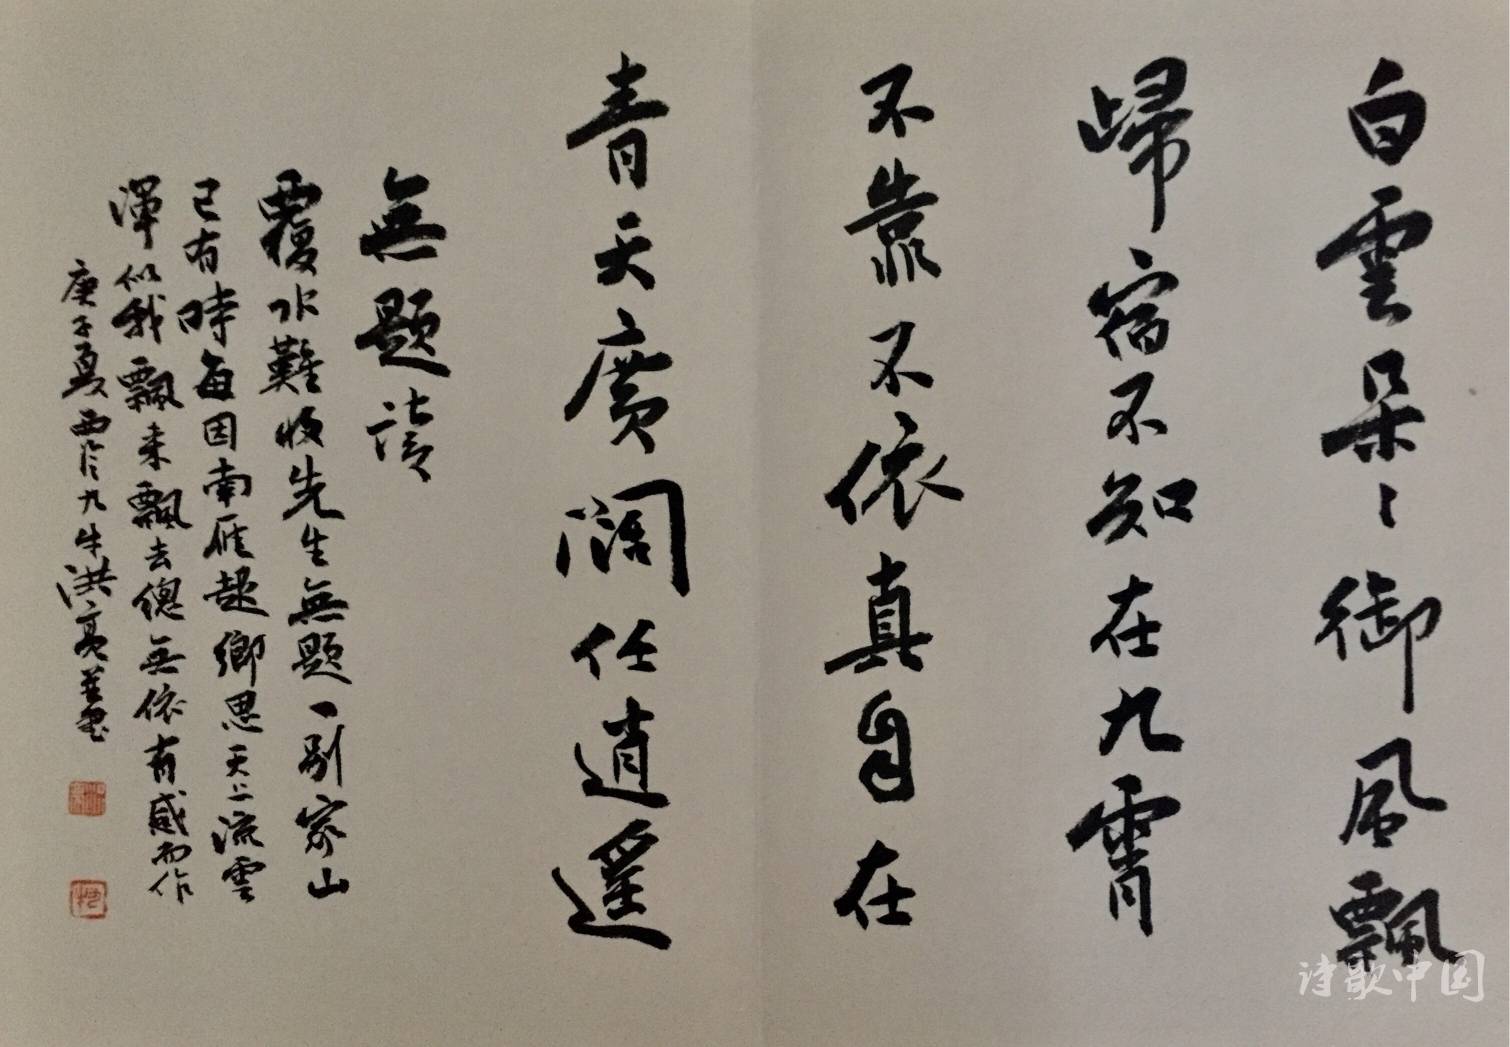 白雲朵〻御風飄
歸宿不知在九霄
不靠不依真自在
青天廣闊任逍遥
無題 讀
覆水難收先生無題一别家山
已有時每因南雁起鄉思天上流雲
渾似我飄來飄去總無依有感而作
庚子夏西泠九牛洪亮并書
诗歌中国